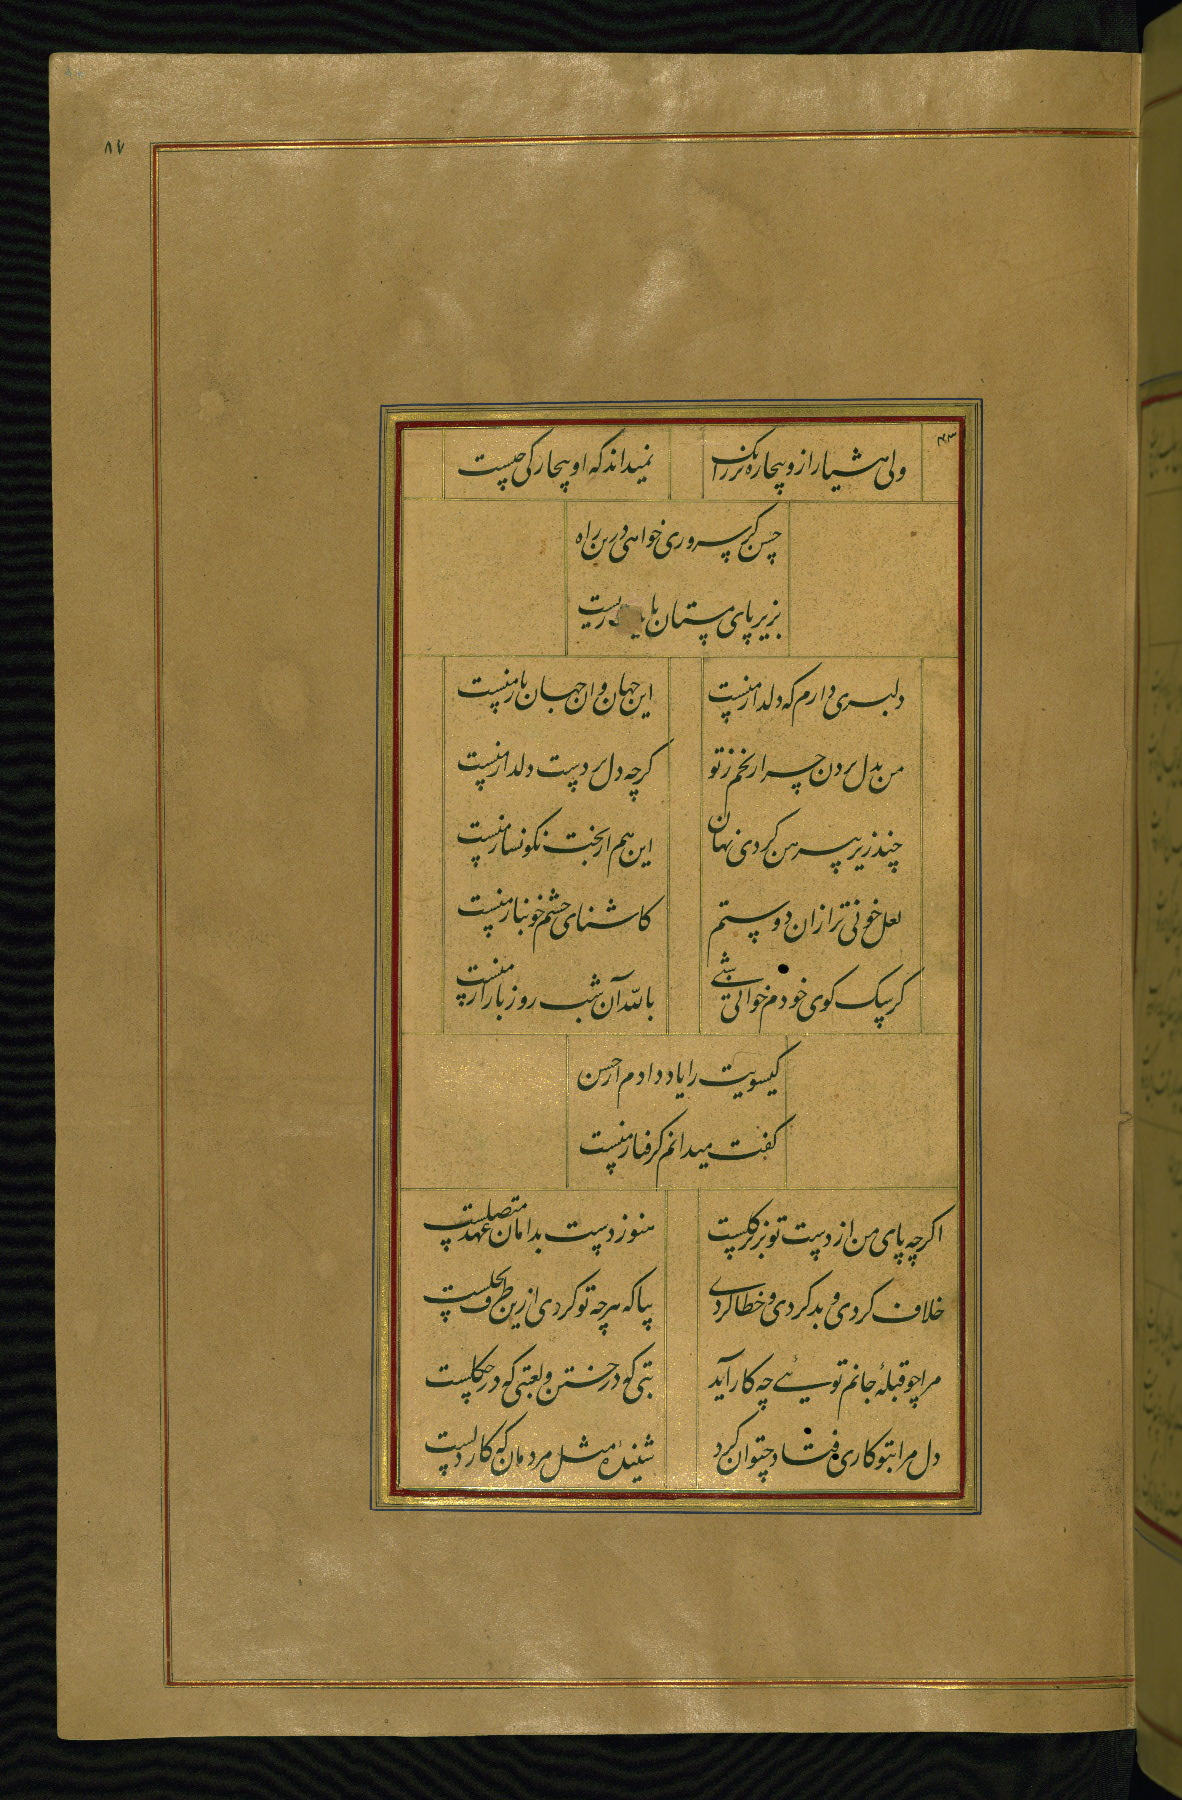 ۸۷
ولی هشیار ازو بیچاره تر زانک
نمیداند که او بیچارکی چیست
حسن گر سروری خواهی درین راه
بزیر پای مستان باید زیست
دلبری دارم که دلدار منست
این جهان و آن جهان یار منست
من بدل بردن چرا رنجم ز تو
کرچه دل بردست دلدار منست
چند زیر پیرهن کردی نهان
این هم از بخت نکونسار منست
لعل خونی تر از آن دوستم
کاشنای چشم خونبار منست
کر سک کوی خودم خوانی شبی
بالله آن شب روز بازار منست
کیسویت را یاد دادم از حسن
کفت میدانم کرفتار منست
اکرچه پای من از دست تو بزیر کلست
هنوز دست بدامان عهد متصلست
خلاف کردی و بد کردی و خطا کردی
بیا که هرچه تو کردی ازین طرف بحلست
مرا چو قبلهٔ جانم تویی چه کار آید
بتی که در ختن و لعبتی که در چکلست
دل مرا بتو کاری فتاد چتوان کرد
شنیدهٔ مثل مردمان که کار دلست